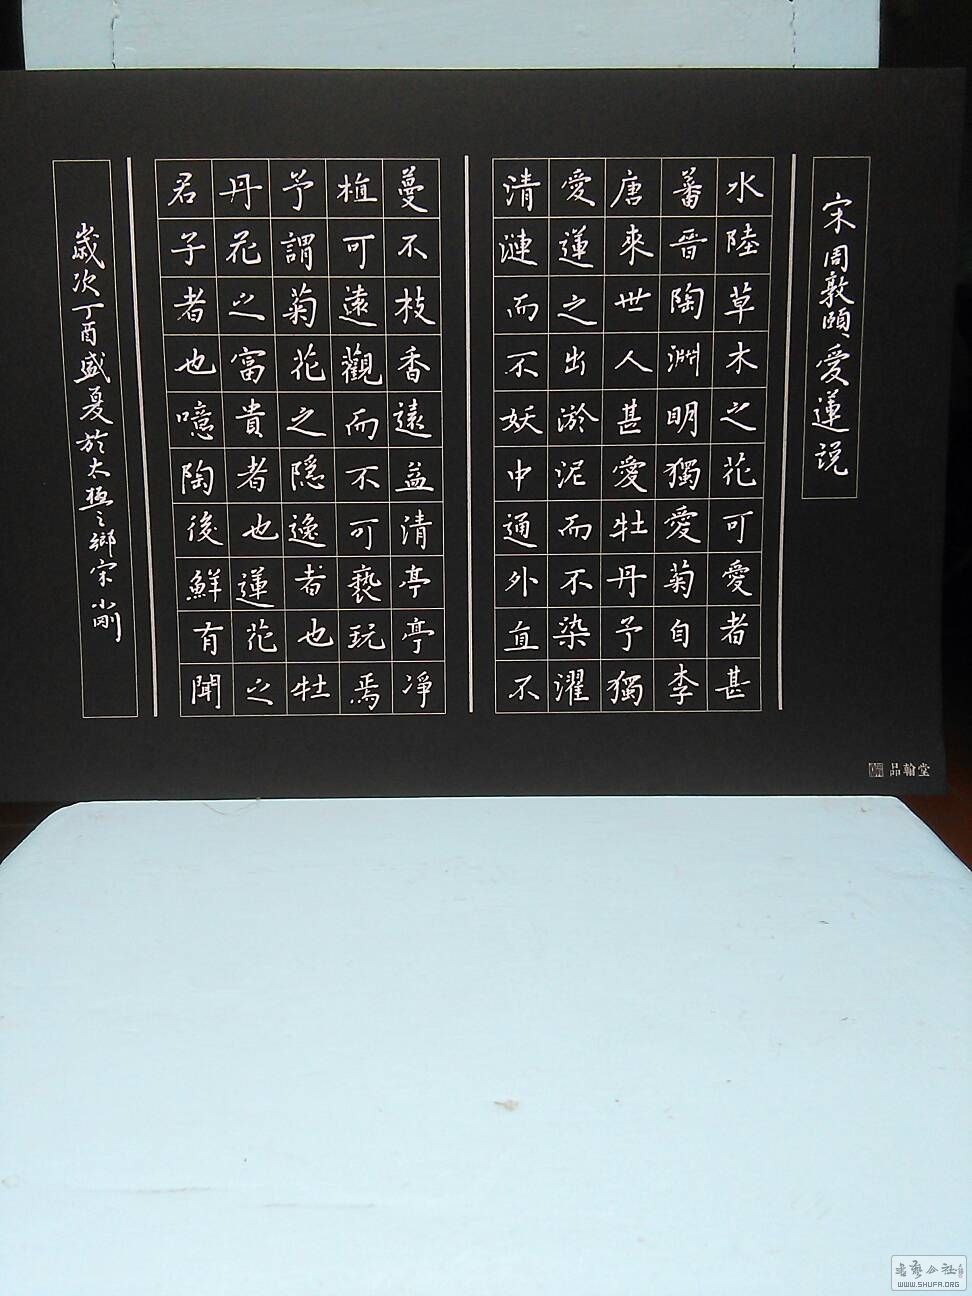 宋周敦頤愛蓮说
水陸草木之花可愛者甚
蕃晋陶淵明獨愛菊自李
唐來世人甚愛牡丹予獨
愛蓮之出淤泥而不染濯
清漣而不妖中通外直不
蔓不枝香遠益清亭亭凈
植可遠觀而不可亵玩焉
予謂菊花之隱逸者也牡
丹花之富貴者也蓮花之
君子者也噫陶後鮮有聞
歲次丁酉盛夏於太極之鄉宋小剛
品翰堂
WWW.SHUFA.ORG